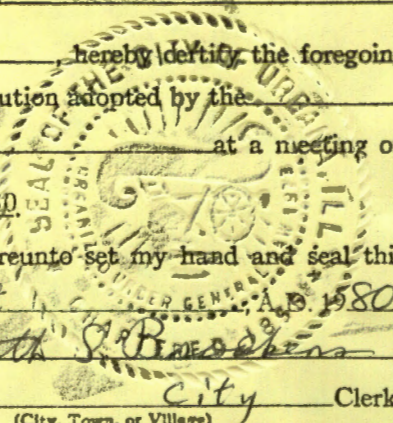 , hereby certify the foregoin
ution adopted by the
at a meeting o
D.
reunto set my hand and seal thi
, A.D. 1980
th S.
City Clerk
(City, Town, or Village)
SEAL OF THE CITY OF URBANA, ILL
UNDER GENERAL